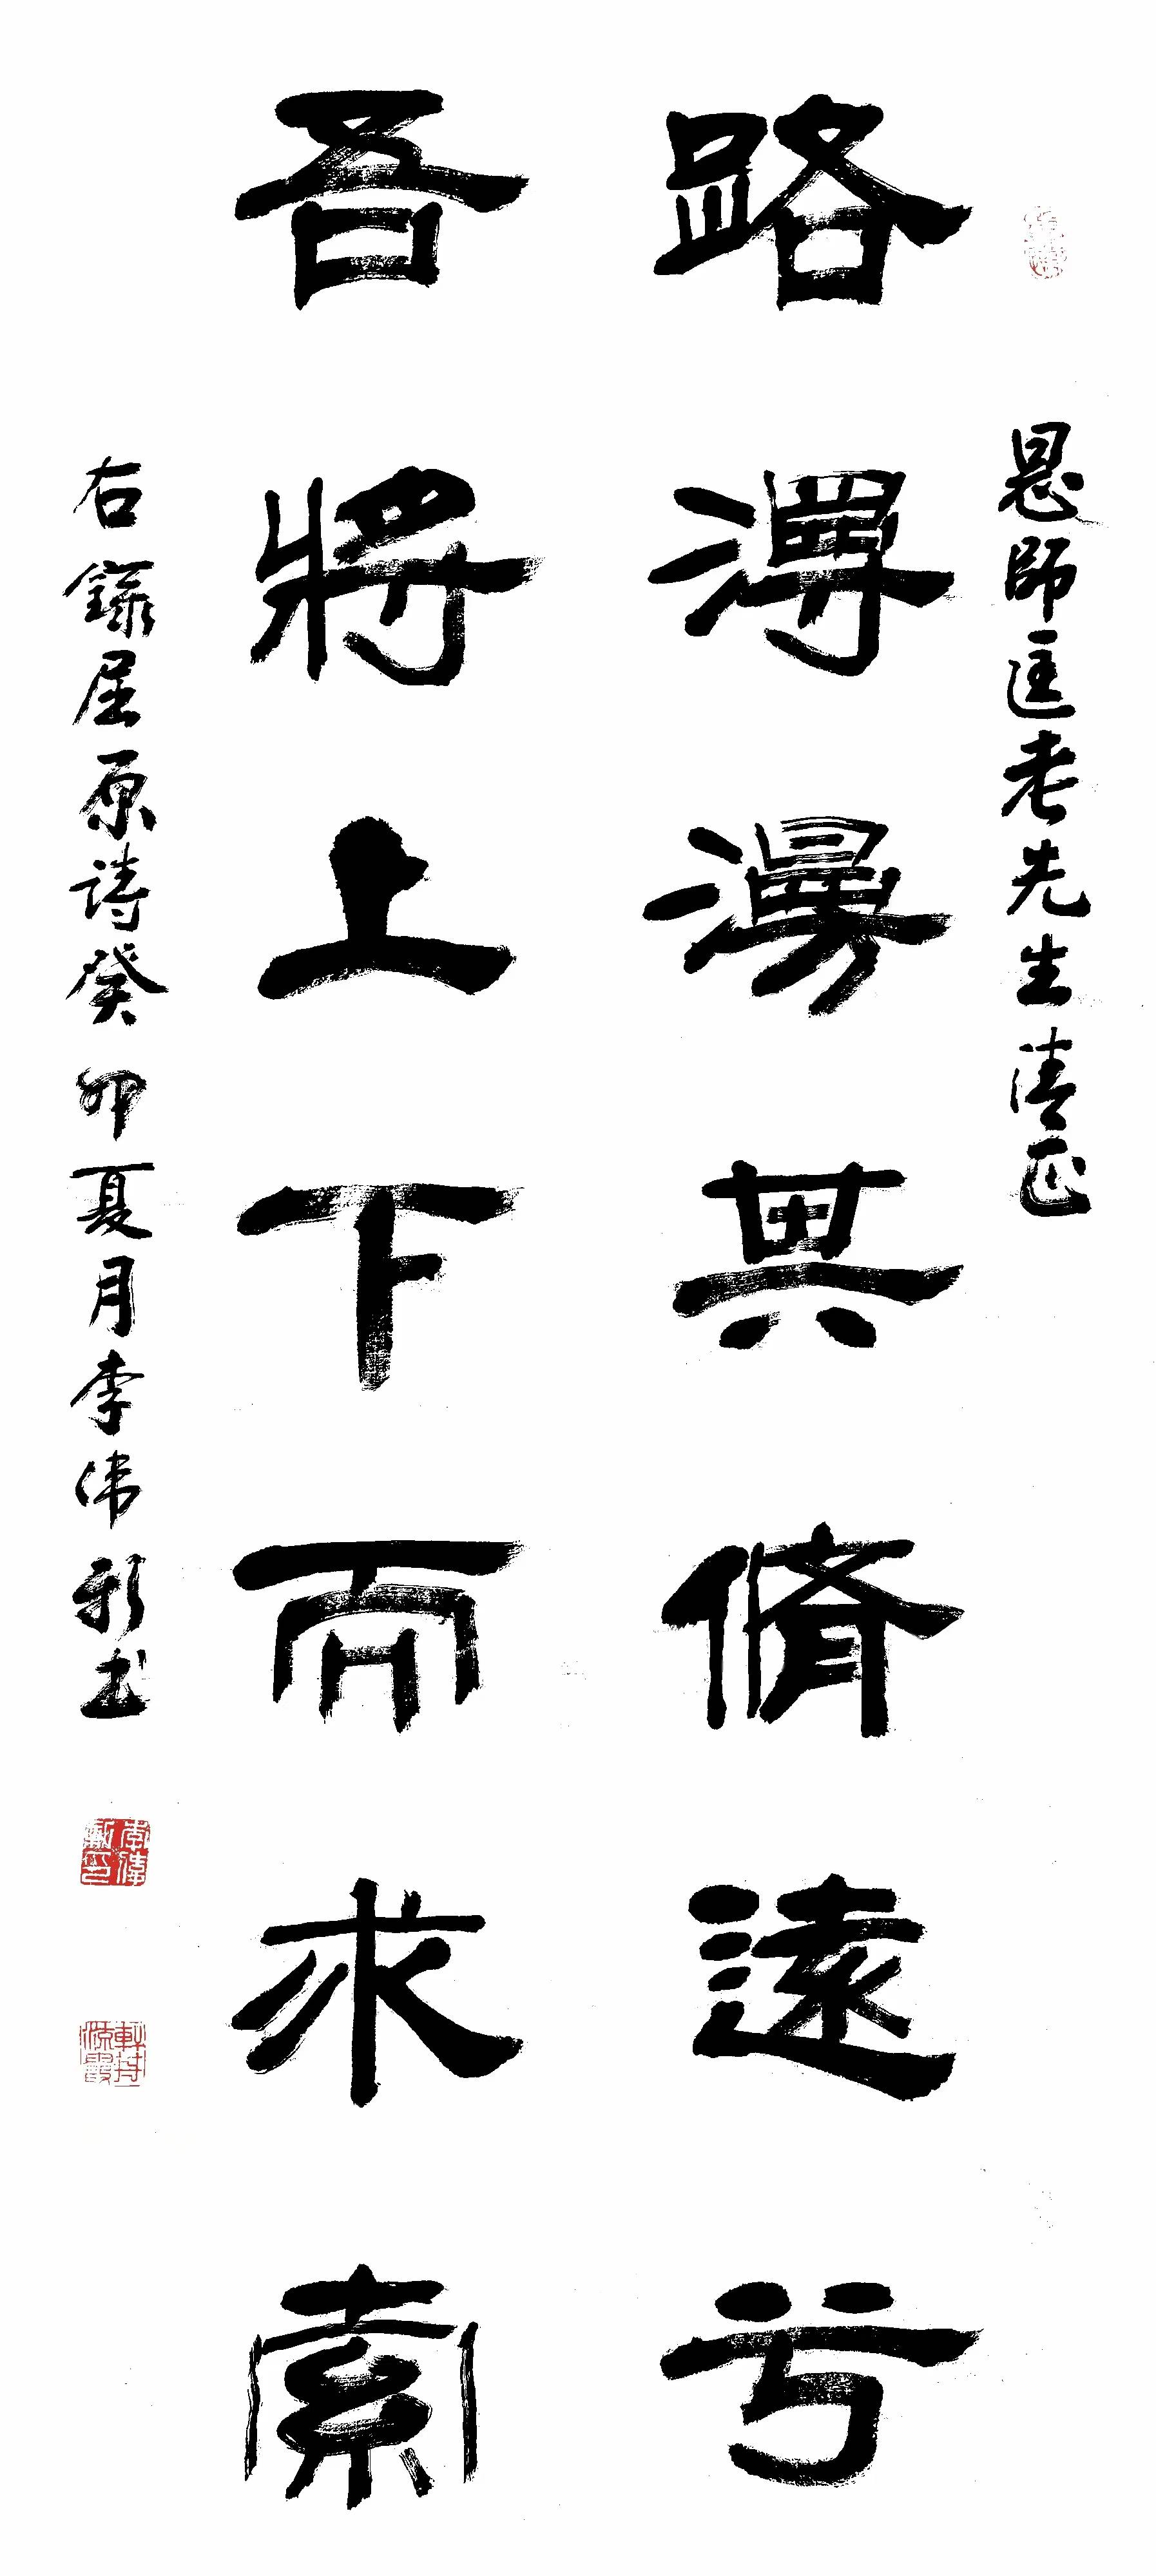 恩師匡老先生清正
路漫漫其脩遠兮
吾將上下而求索
右録屈原詩癸卯夏月李偉新書
李偉新印